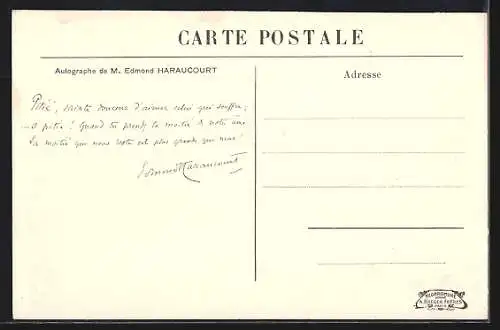 CARTE POSTALE
Autographe de M. Edmond HARAUCOURT
Adresse
Pitié, sainte douceur d'aimer celui qui souffre,
O pitié ! Quand tu prends la moitié de notre âme
La moitié qui nous reste est plus grande que
Edmond Haraucourt
A. BREGER FRÈRES
PARIS